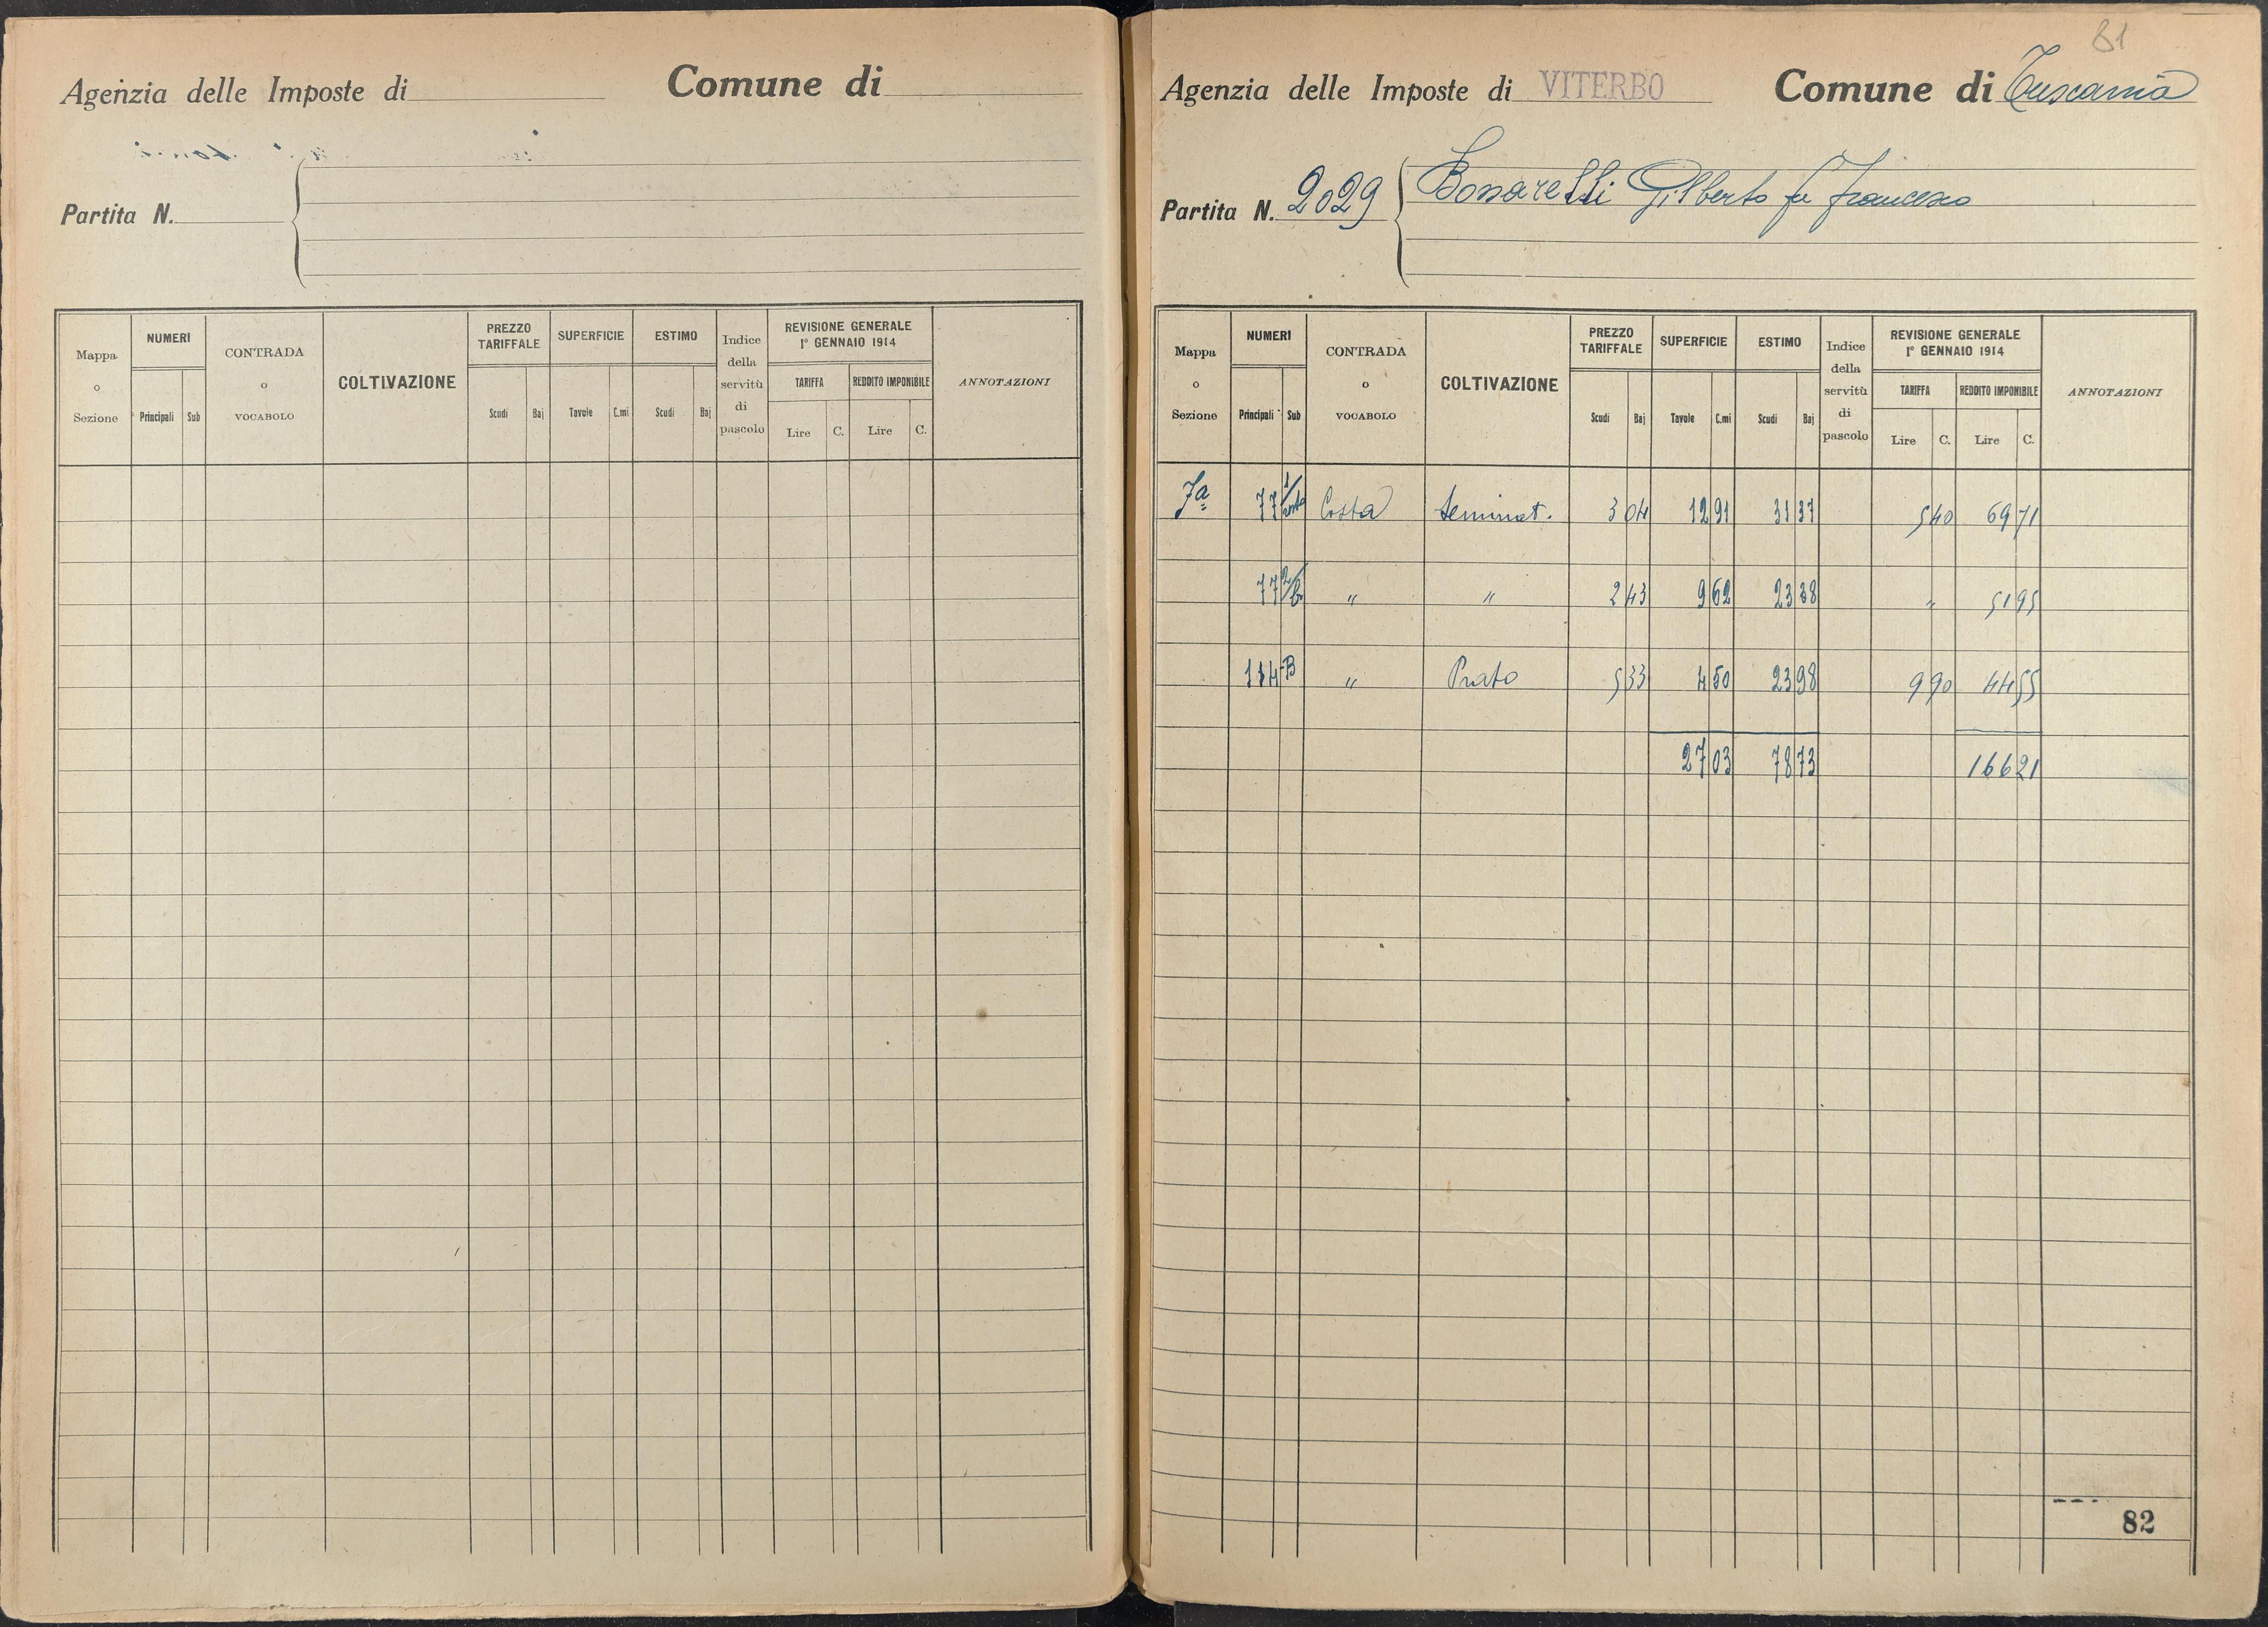 Agenzia delle Imposte di Comune di
Partita N.
Mappa o Sezione NUMERI Principali Sub CONTRADA o VOCABOLO COLTIVAZIONE PREZZO TARIFFALE Scudi Baj SUPERFICIE Tavole C.mi ESTIMO Scudi Baj Indice della servitù di pascolo REVISIONE GENERALE 1° GENNAIO 1914 TARIFFA Lire C. REDDITO IMPONIBILE Lire C. ANNOTAZIONI
81
Agenzia delle Imposte di VITERBO Comune di Tuscania
Partita N. 2029 Bonarelli Gilberto fu Francesco
Mappa o Sezione NUMERI Principali Sub CONTRADA o VOCABOLO COLTIVAZIONE PREZZO TARIFFALE Scudi Baj SUPERFICIE Tavole C.mi ESTIMO Scudi Baj Indice della servitù di pascolo REVISIONE GENERALE 1° GENNAIO 1914 TARIFFA Lire C. REDDITO IMPONIBILE Lire C. ANNOTAZIONI
7a 77 1/ Costa Seminat. 3 04 12 91 31 37 5 40 69 71
77 2/b " " 2 43 9 62 23 38 " 51 95
114 B " Prato 5 33 4 50 23 98 9 90 44 55
27 03 78 73 166 21
82